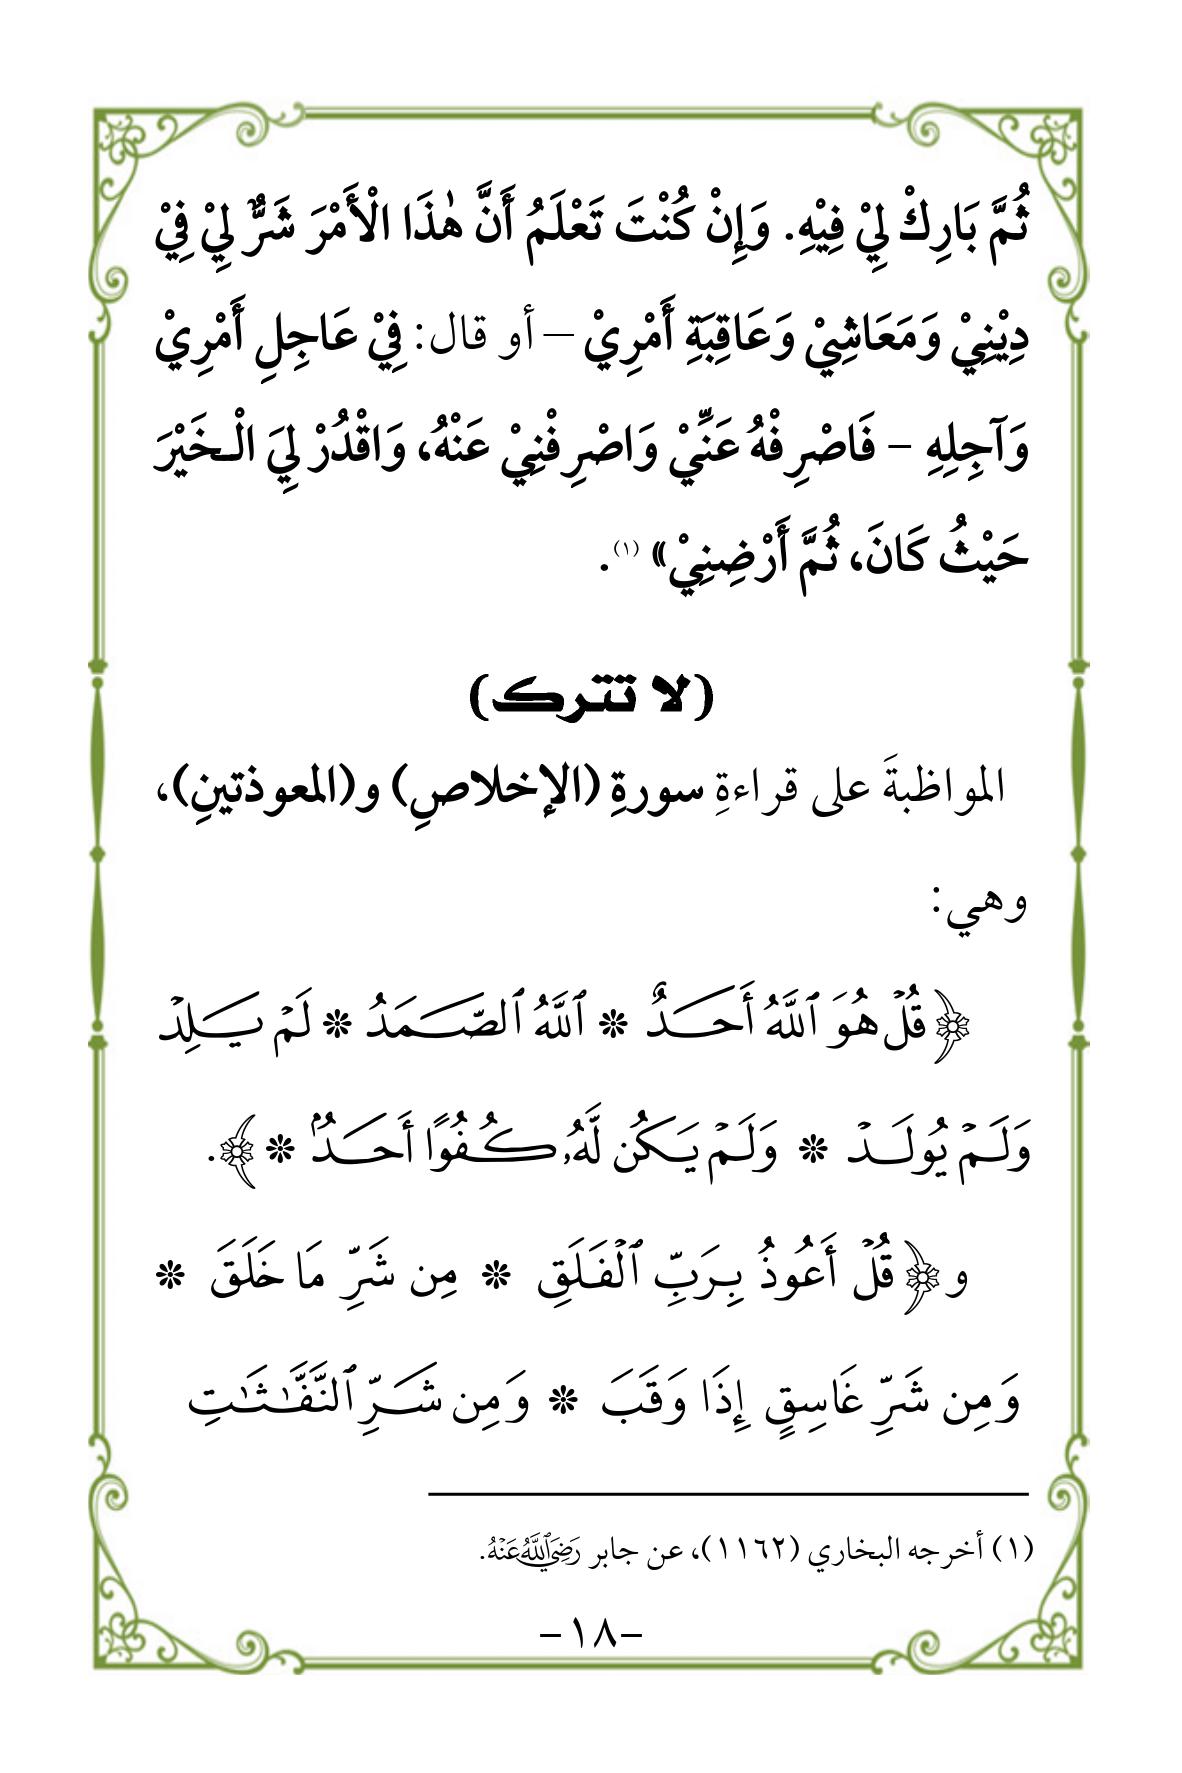 ثُمَّ بَارِكْ لِيْ فِيْهِ. وَإِنْ كُنْتَ تَعْلَمُ أَنَّ هٰذَا الْأَمْرَ شَرٌّ لِيْ فِيْ
دِيْنِيْ وَمَعَاشِيْ وَعَاقِبَةِ أَمْرِيْ – أو قال: فِيْ عَاجِلِ أَمْرِيْ
وَآجِلِهِ – فَاصْرِفْهُ عَنِّيْ وَاصْرِفْنِيْ عَنْهُ، وَاقْدُرْ لِيَ الْـخَيْرَ
حَيْثُ كَانَ، ثُمَّ أَرْضِنِيْ» (١).
(لا تترك)
المواظبةَ على قراءةِ سورةِ (الإخلاصِ) و(المعوذتينِ)،
وهي:
﴿قُلۡ هُوَ ٱللَّهُ أَحَـدٌ * ٱللَّهُ ٱلصَّـمَدُ * لَمۡ يَـلِدۡ
وَلَـمۡ يُولَـدۡ * وَلَـمۡ يَـكُن لَّهُۥ كُـفُوًا أَحَـدُۢ *﴾.
و﴿قُلۡ أَعُوذُ بِـرَبِّ ٱلۡفَلَقِ * مِن شَرِّ مَا خَلَقَ *
وَمِن شَرِّ غَاسِقٍ إِذَا وَقَبَ * وَمِن شَـرِّ ٱلنَّفَّـٰثَـٰتِ
(١) أخرجه البخاري (١١٦٢)، عن جابر رَضِيَ ٱللَّهُ عَنْهُ.
–١٨–